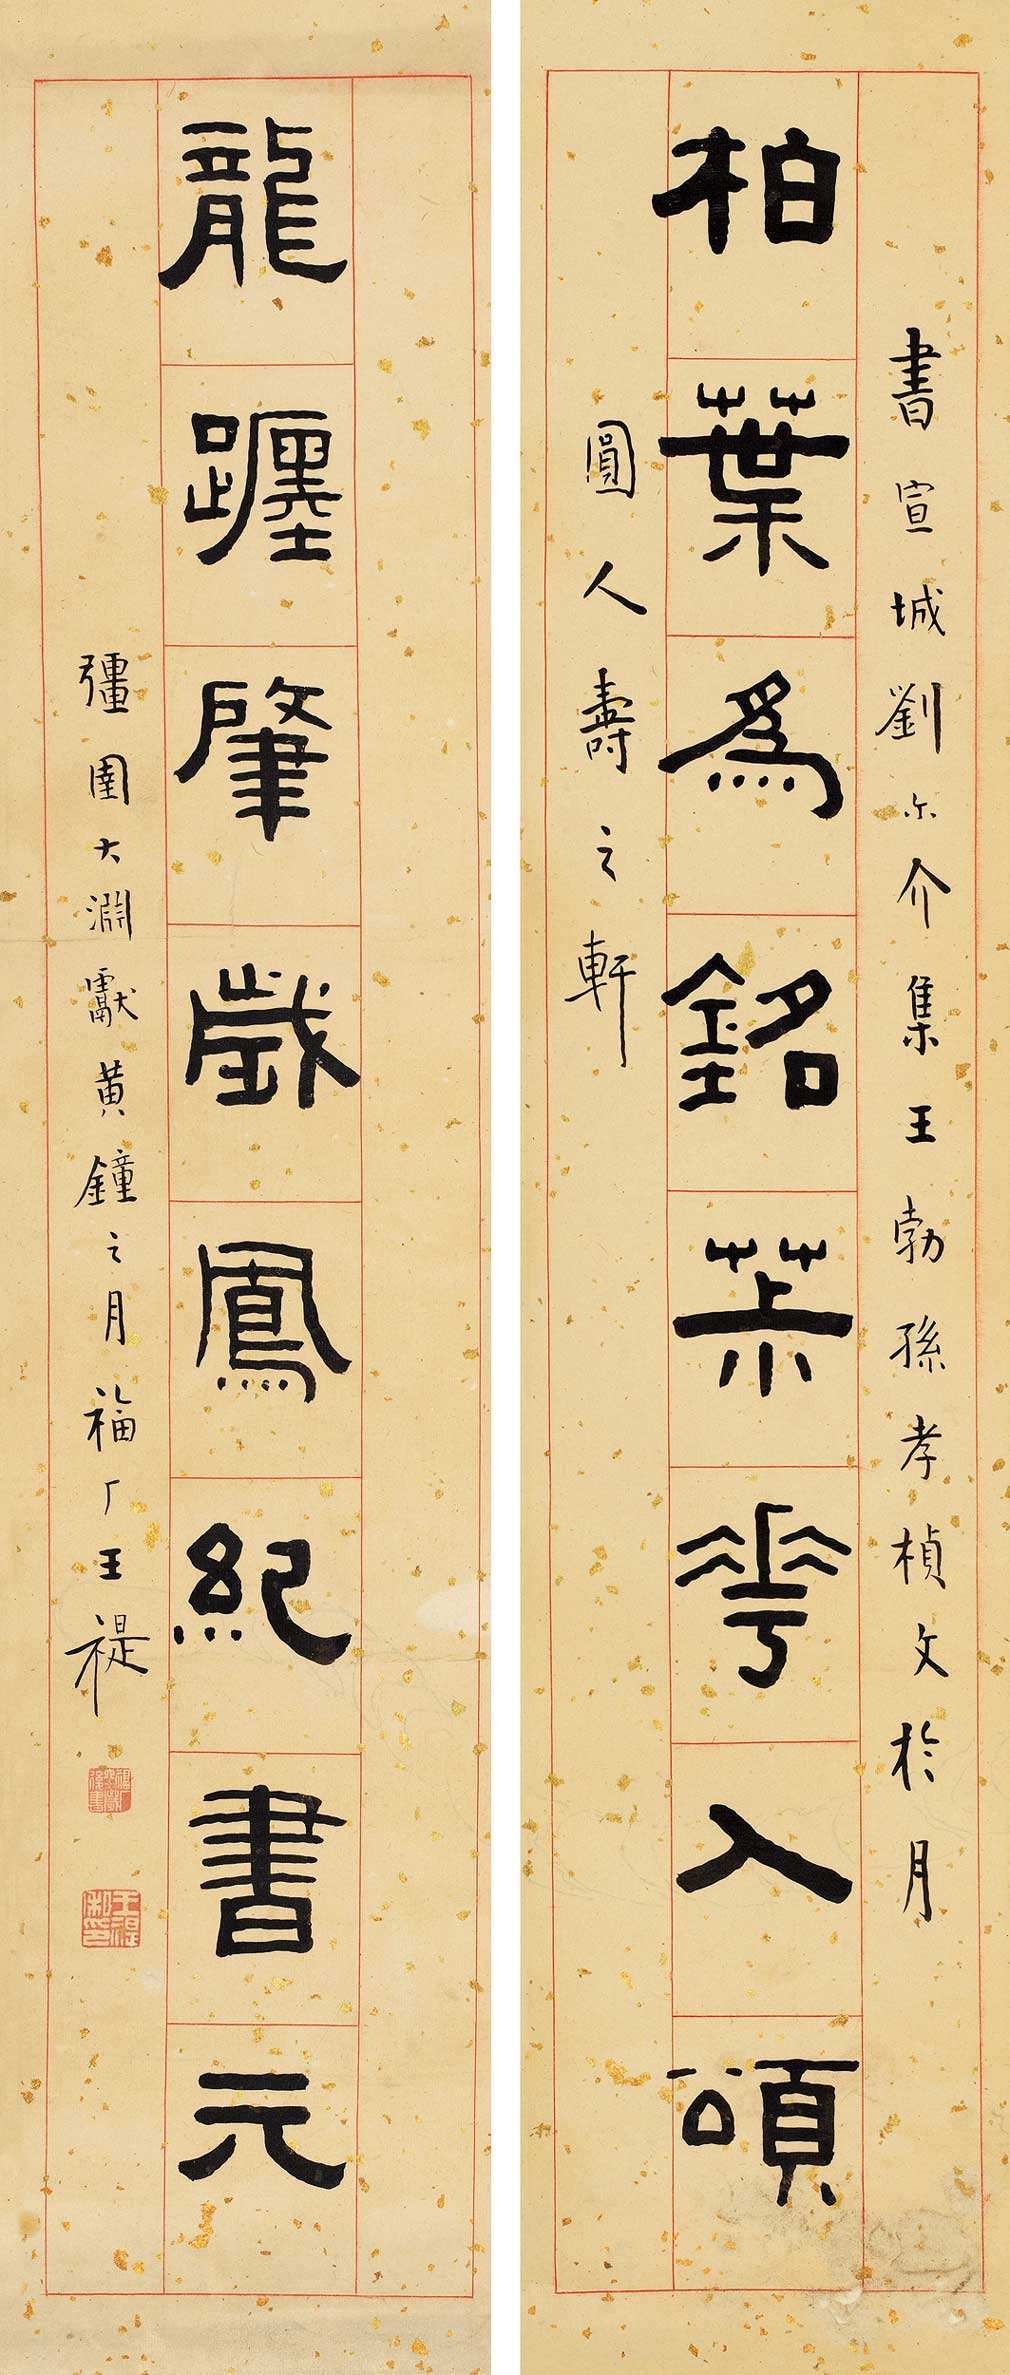 書宣城劉尒介集王勃孫孝楨文於月
柏葉為銘茮華入頌
圓人壽之軒
龍躔肇歲鳳紀書元
彊圉大淵獻黃鐘之月福厂王禔
王禔私印